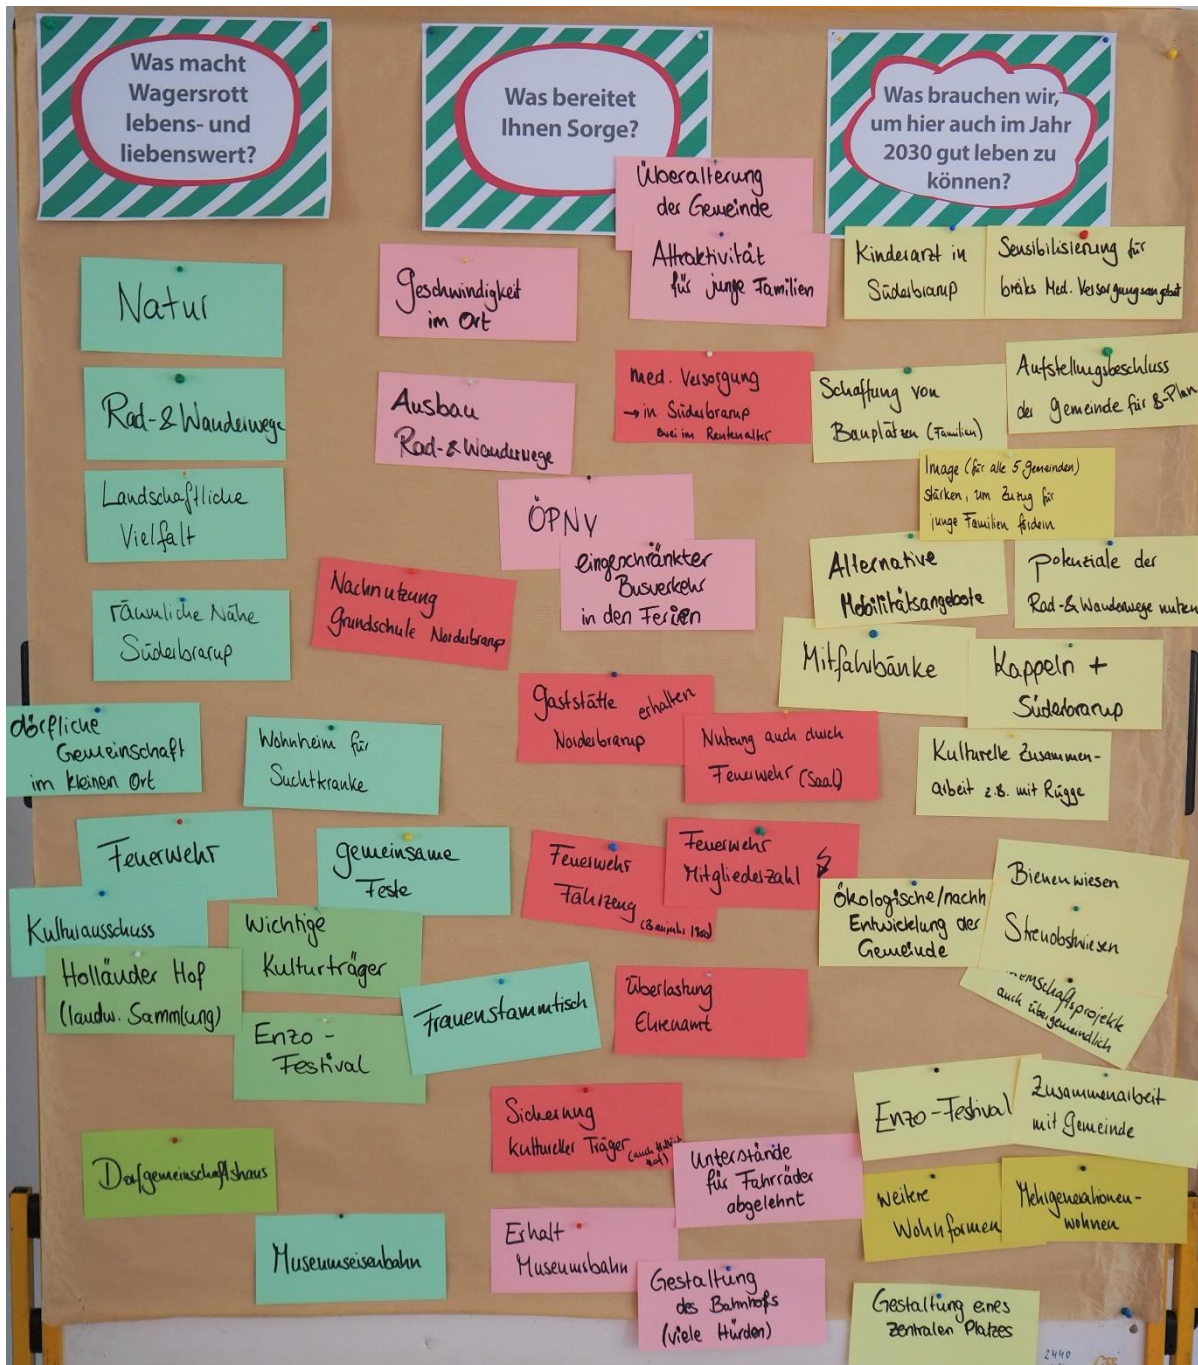 Was macht
Wagersrott
lebens- und
liebenswert?
Natur
Rad- & Wanderwege
Landschaftliche
Vielfalt
räumliche Nähe
Süderbrarup
dörfliche
Gemeinschaft
im kleinen Ort
Wohnheim für
Suchtkranke
Feuerwehr
gemeinsame
Feste
Kulturausschuss
Wichtige
Kulturträger
Holländer Hof
(landw. Sammlung)
Enzo-
Festival
Frauenstammtisch
Dorfgemeinschaftshaus
Museumseisenbahn
Was bereitet
Ihnen Sorge?
Überalterung
der Gemeinde
Attraktivität
für junge Familien
Geschwindigkeit
im Ort
Ausbau
Rad- & Wanderwege
med. Versorgung
→ in Süderbrarup
zwei im Rentenalter
ÖPNV
eingeschränkter
Busverkehr
in den Ferien
Nachnutzung
Grundschule Norderbrarup
Gaststätte erhalten
Norderbrarup
Nutzung auch durch
Feuerwehr (Saal)
Feuerwehr
Fahrzeug
(Baujahr
Feuerwehr
Mitgliederzahl
Überlastung
Ehrenamt
Sicherung
kultureller Träger (auch
Hof)
Unterstände
für Fahrräder
abgelehnt
Erhalt
Museumsbahn
Gestaltung
des Bahnhofs
(viele Hürden)
Was brauchen wir,
um hier auch im Jahr
2030 gut leben zu
können?
Kinderarzt in
Süderbrarup
Sensibilisierung für
Med. Versorgungsangebot
Schaffung von
Bauplätzen (Familien)
Aufstellungsbeschluss
der Gemeinde für B-Plan
Image (für alle 5 Gemeinden)
stärken, um Zuzug für
junge Familien fördern
Alternative
Mobilitätsangebote
Potenziale der
Rad- & Wanderwege nutzen
Mitfahrbänke
Kappeln +
Süderbrarup
Kulturelle Zusammen-
arbeit z.B. mit Rügge
Ökologische/nachh
Entwicklung der
Gemeinde
Bienenwiesen
Streuobstwiesen
auch übergemeindlich
Enzo-Festival
Zusammenarbeit
mit Gemeinde
weitere
Wohnformen
Mehrgenerationen-
wohnen
Gestaltung eines
zentralen Platzes
2440